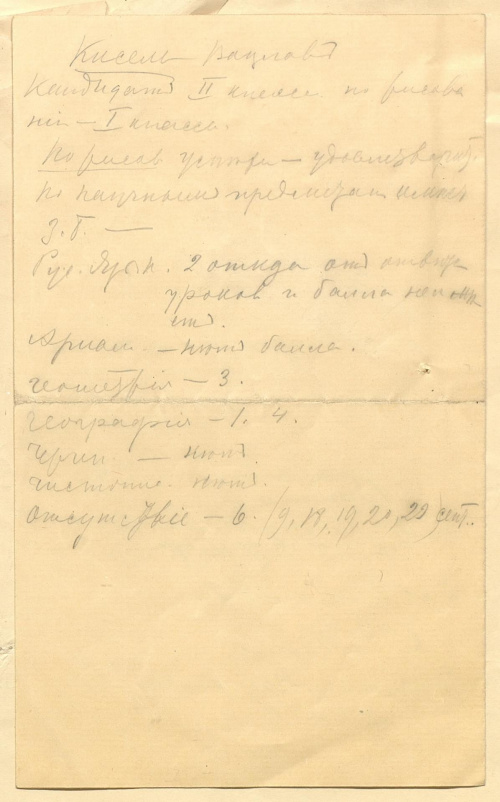 Кисель Вацлавъ
Кандидатъ II класса по рисова
нiю – I класса.
По рисов. успѣхи – удовлетворит.
По научнымъ предметамъ имѣетъ
З. Б. —
Рус. Язык. 2 отказа отъ отвѣт.
уроковъ и балла не имѣ
етъ.
Ариөм. – нѣтъ балла.
Геометрiя – 3.
Географiя – 1. 4.
Черчен. – нѣтъ.
Чистопис. нѣтъ.
Отсутствiе – 6. (9, 18, 19, 20, 22) сент.